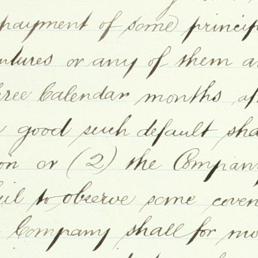 payment of some princip
ntures or any of them a
hree Calendar months af
good such default sha
on or (2) the Company
ail to observe some coven
Company shall for mo